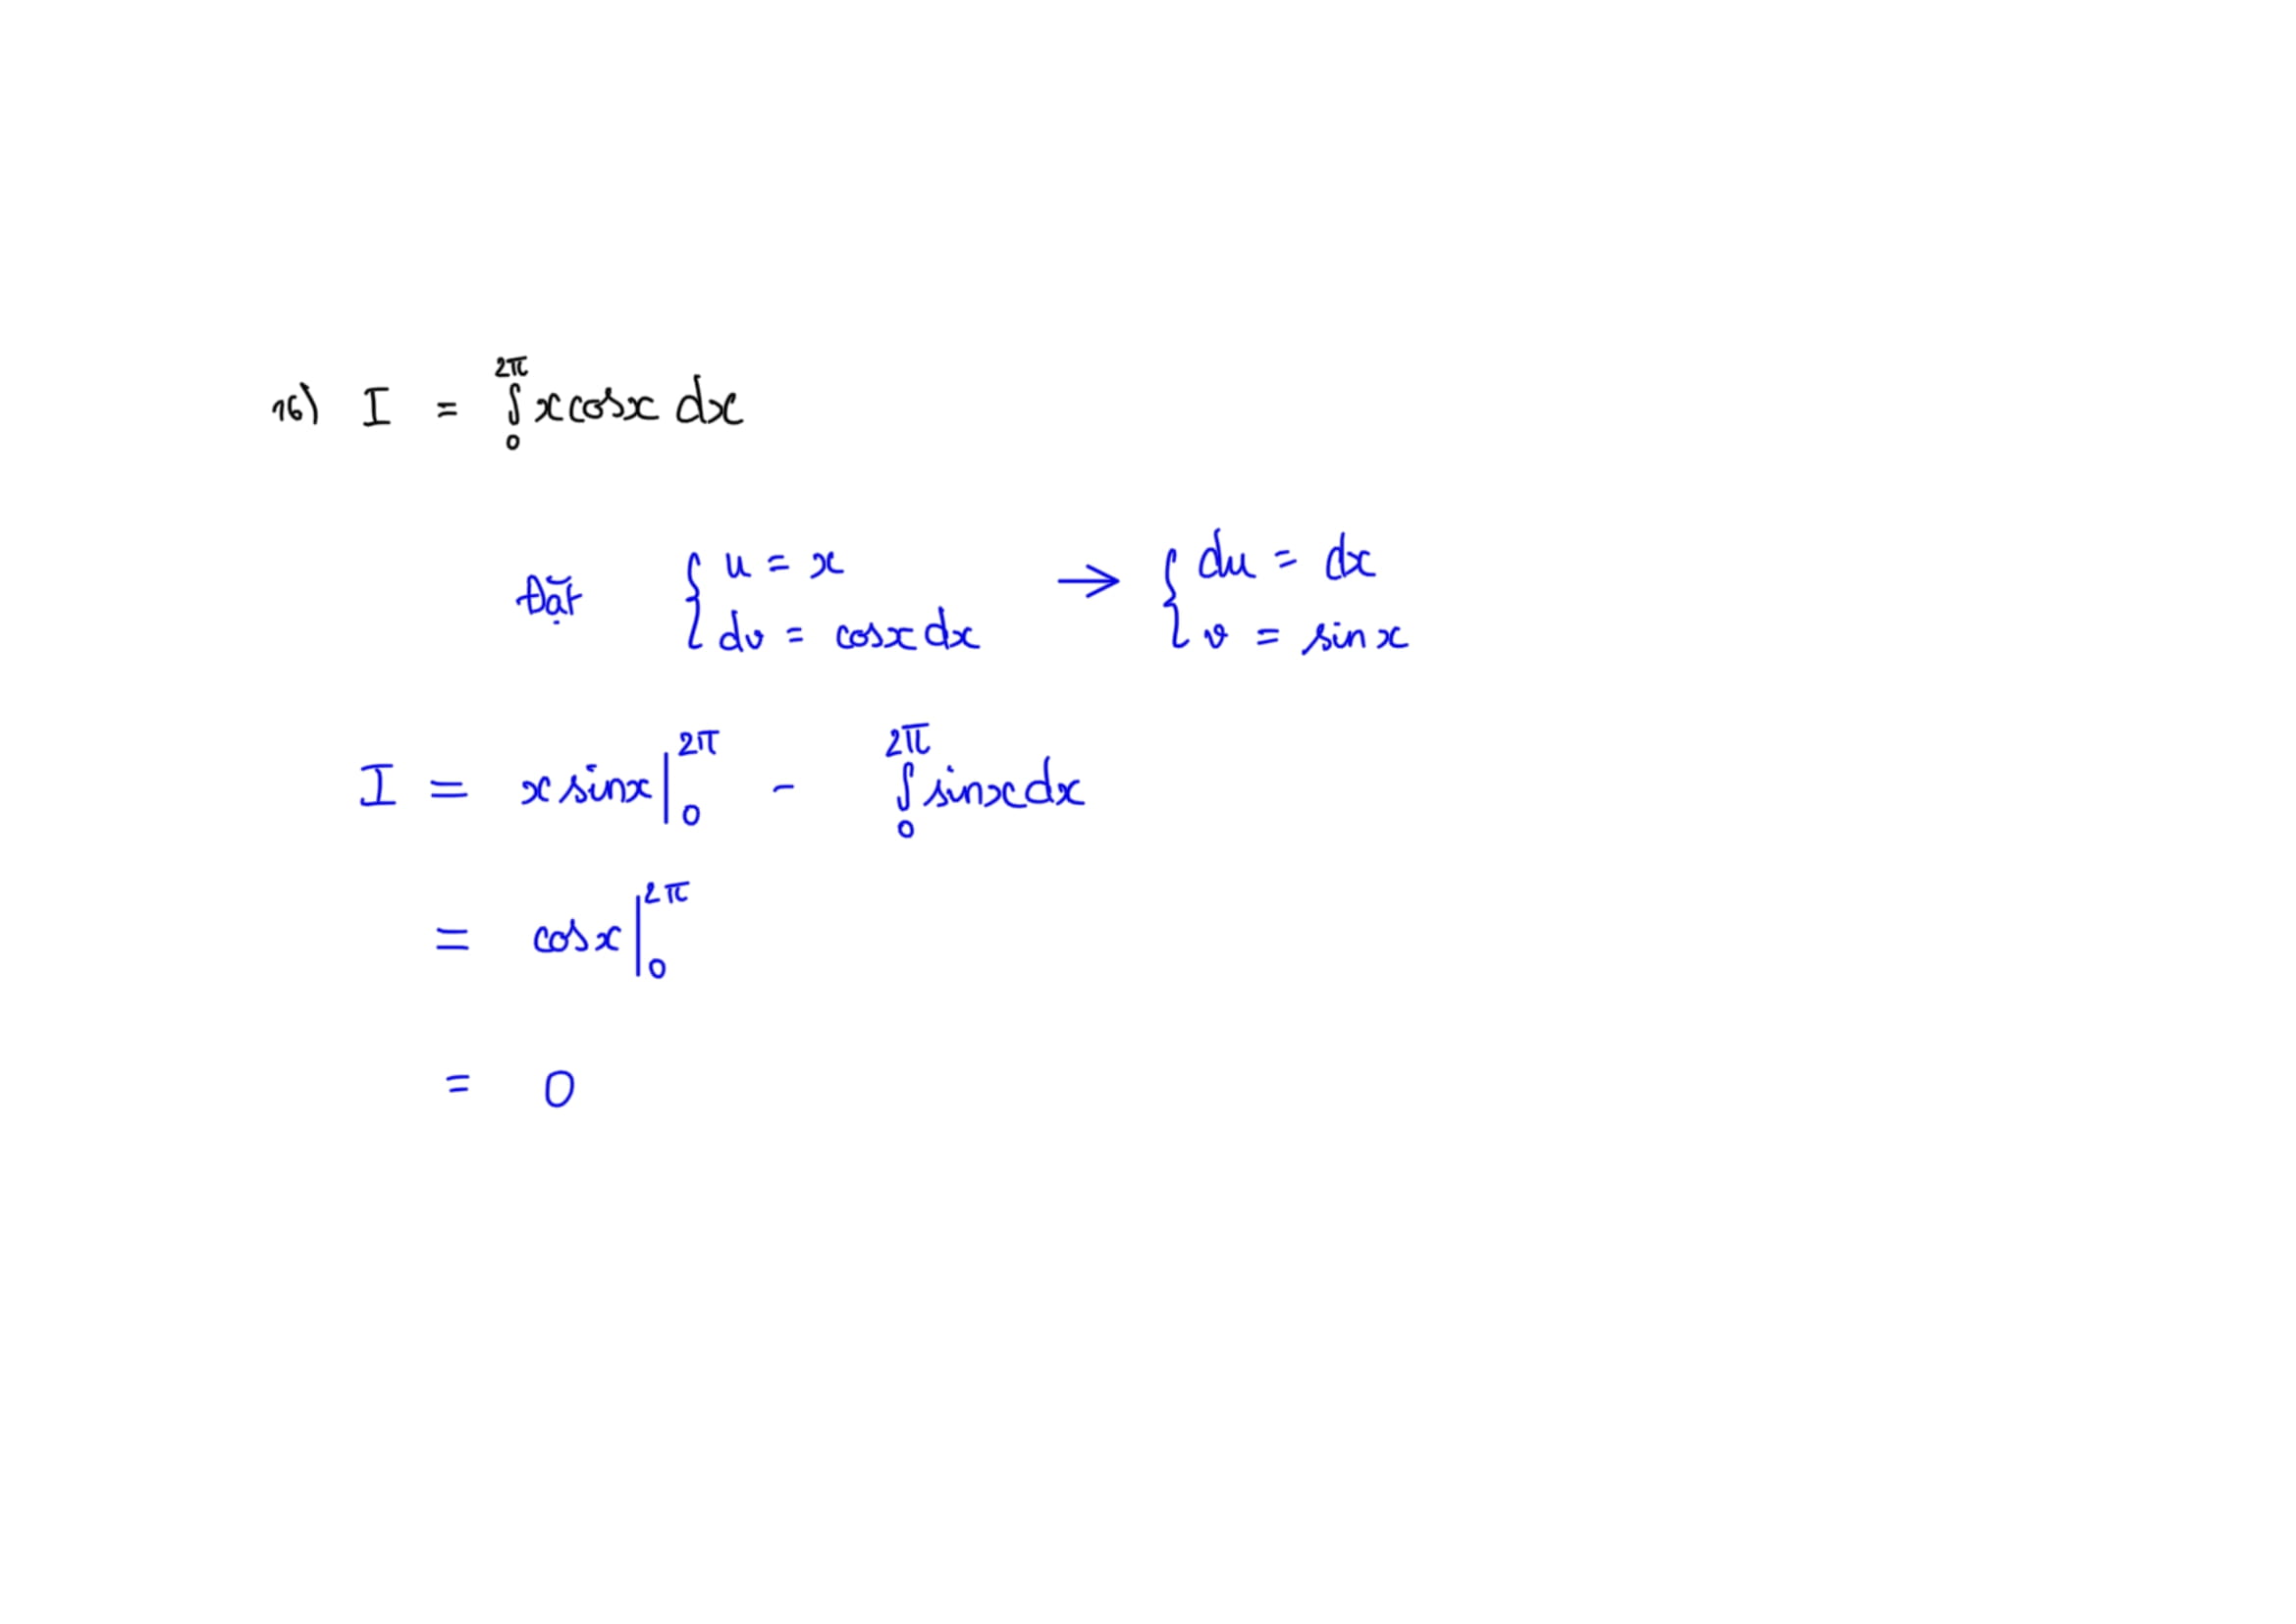 16) I = ∫₀^{2π} x cos x dx
Đặt { u = x → { du = dx
dv = cos x dx v = sin x
I = x sin x |₀^{2π} - ∫₀^{2π} sin x dx
= cos x |₀^{2π}
= 0